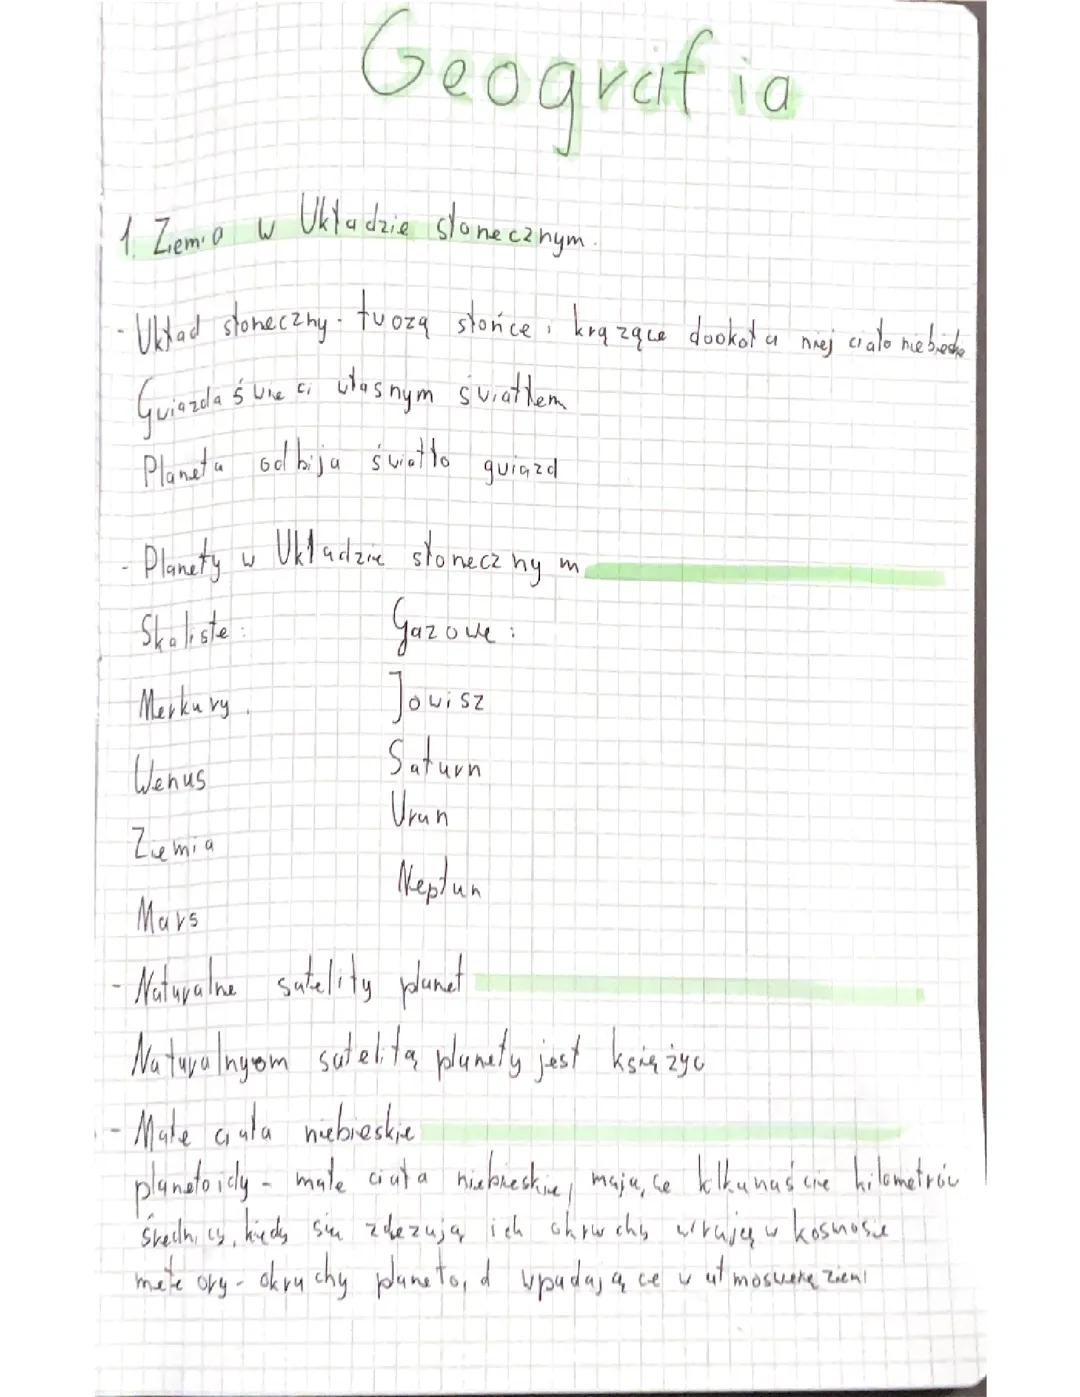 Geografia
1. Ziemia w Układzie słonecznym.
- Układ słoneczny - tworzą słońce i krążące dookoła niej ciało niebieskie
Gwiazda świeci własnym światłem
Planeta odbija światło gwiazd
- Planety w Układzie słonecznym
Skaliste: Gazowe:
Merkury. Jowisz
Wenus Saturn
Uran
Ziemia
Neptun
Mars
- Naturalne satelity planet
Naturalnyom satelitą planety jest księżyc
- Małe ciała niebieskie
planetoidy - małe ciała niebieskie, mające kilkunaście kilometrów
średnicy, kiedy się zderzują ich okruchy wirują w kosmosie
meteory - okruchy planetoid wpadające w atmosferę ziemi